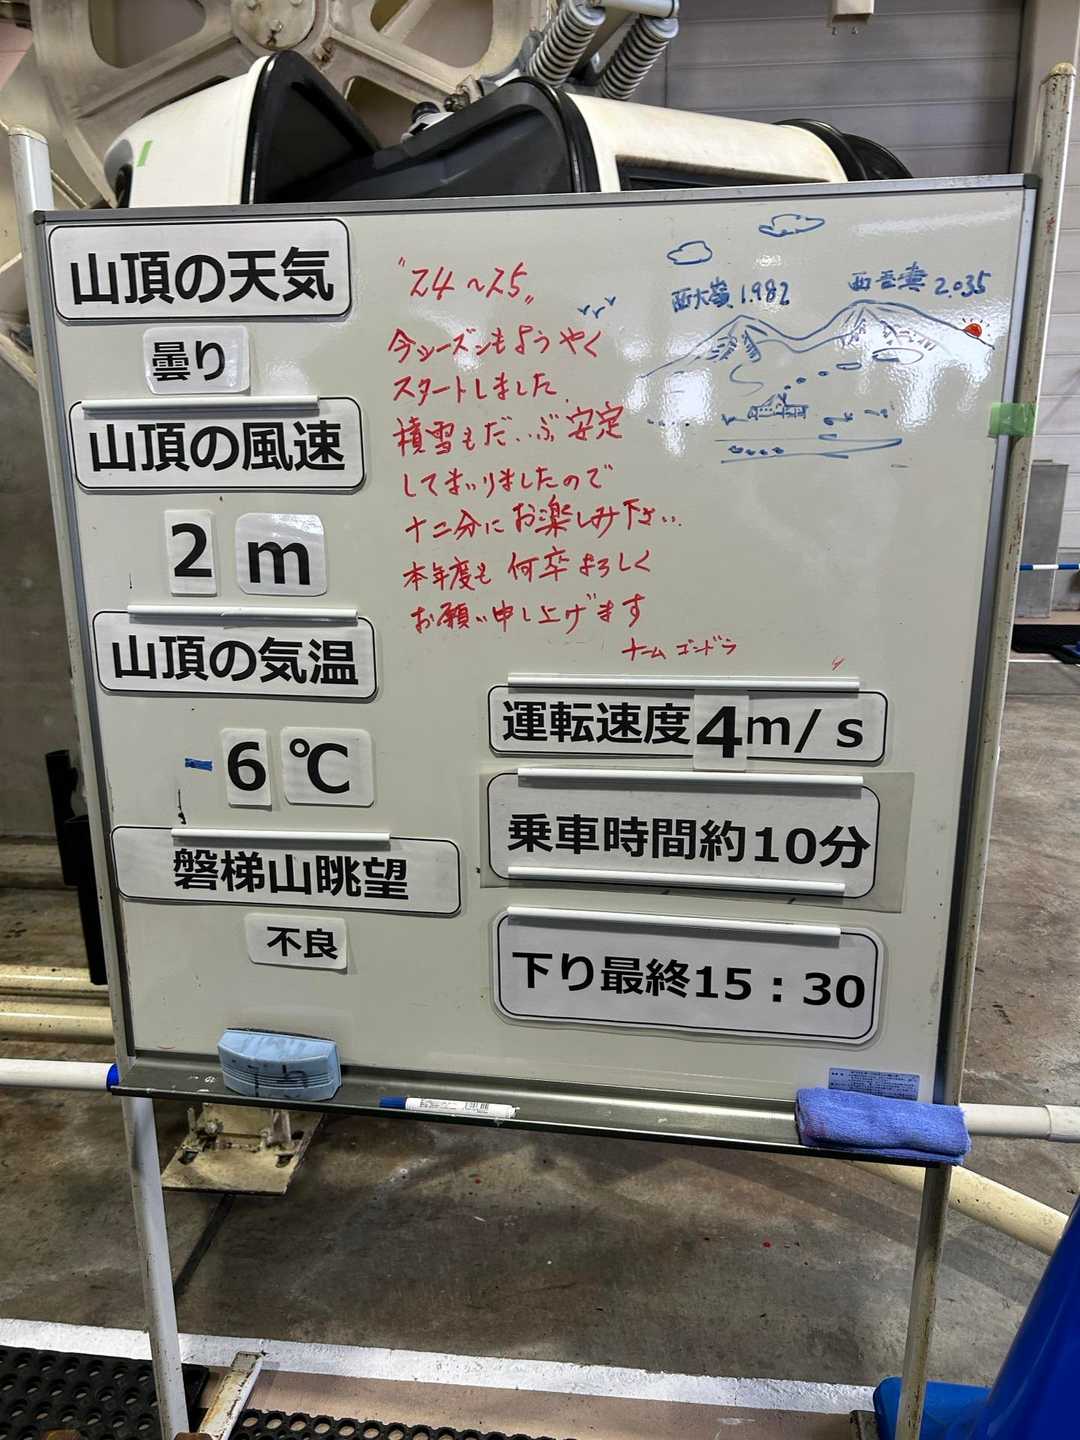 山頂の天気
曇り
山頂の風速
2 m
山頂の気温
-6 ℃
磐梯山眺望
不良
"24～25"
今シーズンもようやく
スタートしました.
積雪もだいぶ安定
してまいりましたので
十二分にお楽しみ下さい.
本年度も何卒よろしく
お願い申し上げます
チームゴンドラ
西大巓 1.982
西吾妻 2.035
運転速度4m/s
乗車時間約10分
下り最終15：30